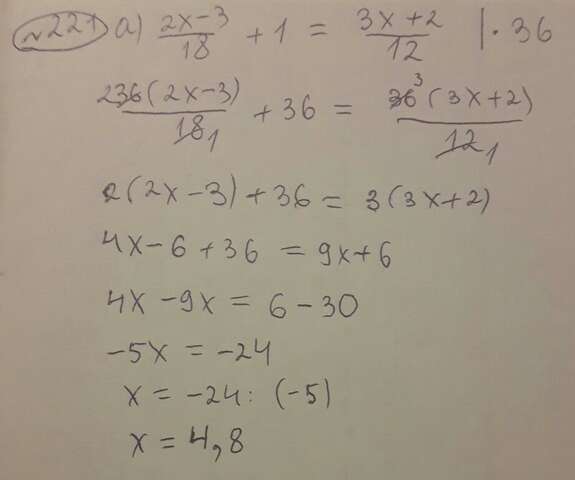 №221 а) (2x-3)/18 + 1 = (3x+2)/12 | · 36
²36(2x-3)/18₁ + 36 = 36³(3x+2)/12₁
2(2x-3)+36 = 3(3x+2)
4x-6+36 = 9x+6
4x-9x = 6-30
-5x = -24
x = -24 : (-5)
x = 4,8